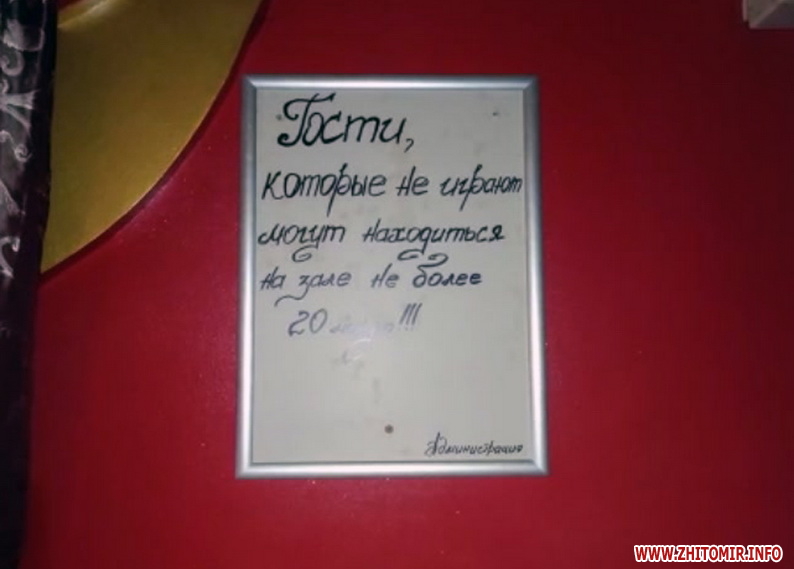 Гости,
которые не играют
могут находиться
на зале не более
20 !!!
Администрация
WWW.ZHITOMIR.INFO